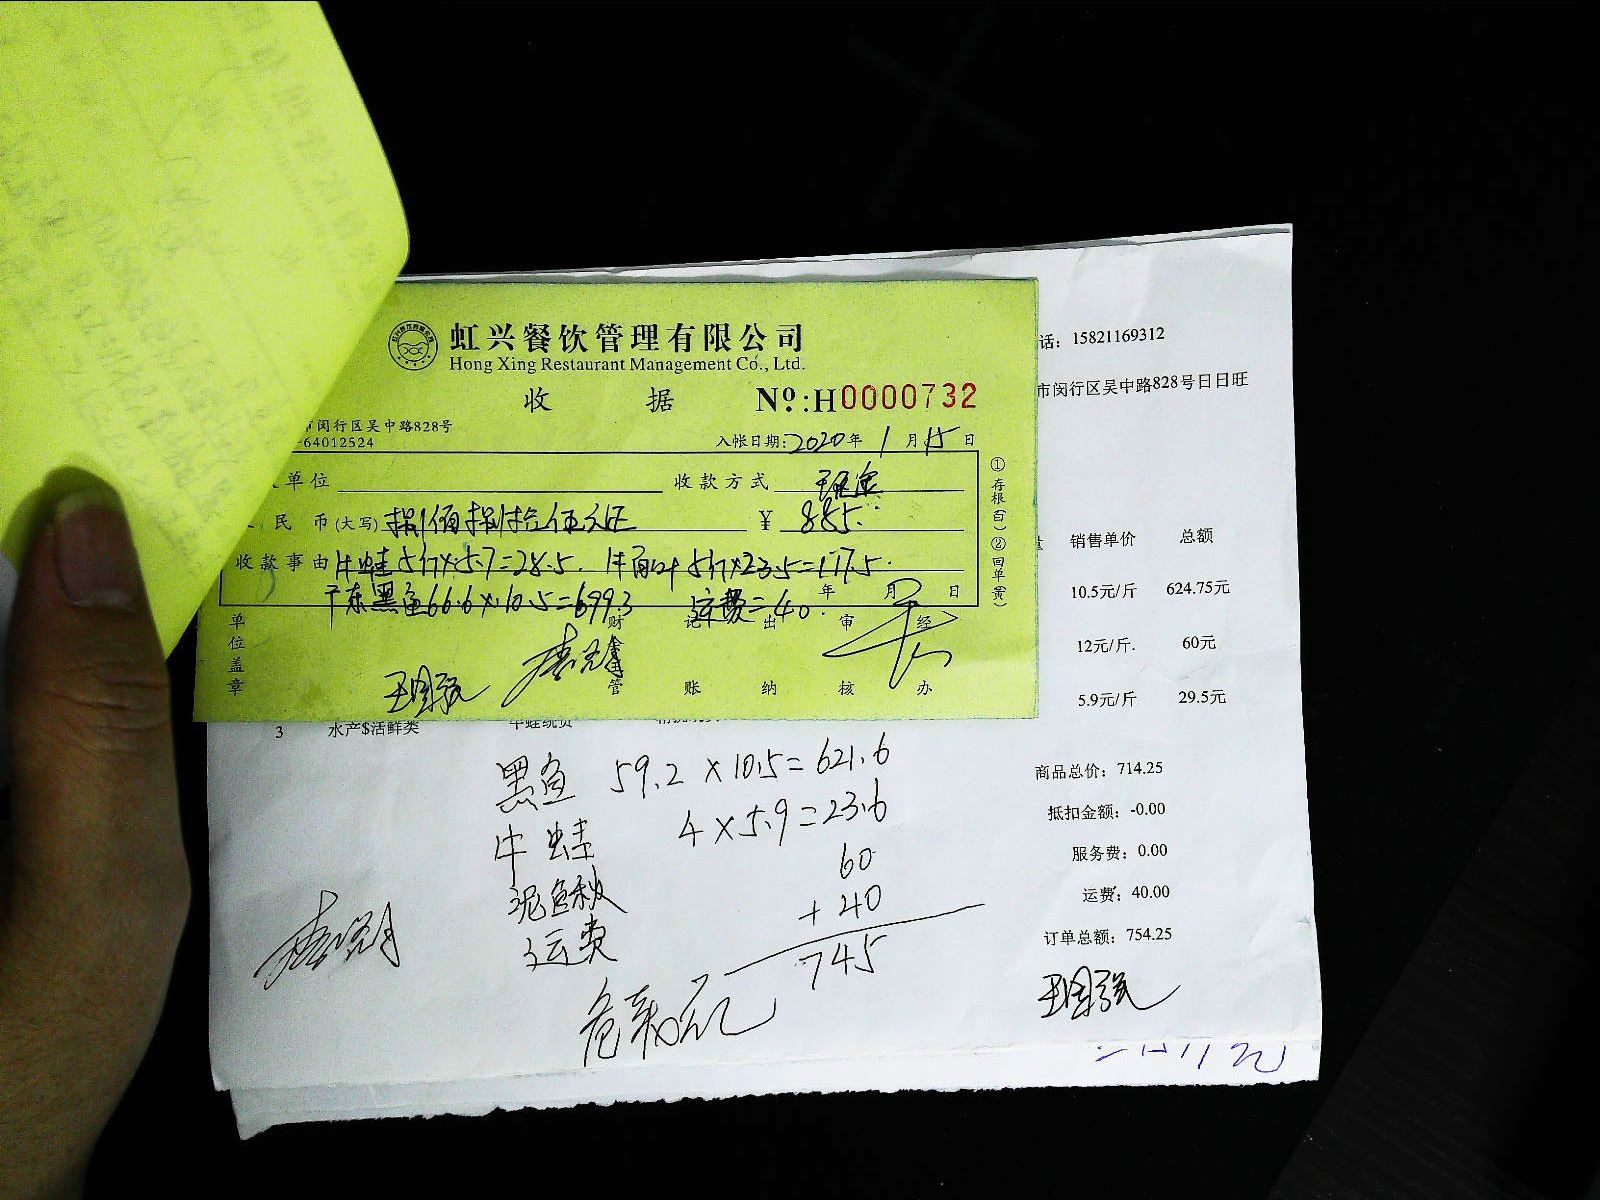 虹兴餐饮管理有限公司
Hong Xing Restaurant Management Co., Ltd.
收据 Nº:H0000732
市闵行区吴中路828号
-64012524
入帐日期:2020年1月15日
单位 收款方式
民币(大写) 捌佰捌拾伍元正 ¥ 885.
收款事由 牛蛙5斤×5.7=28.5. 5斤×23.5=117.5.
广东黑鱼66.6×10.5=699.3 运费=40.
年 月 日
单位盖章
财 记 出 审 经
管 账 纳 核 办
王国强
①存根(白)②回单(黄)
话：15821169312
市闵行区吴中路828号日日旺
销售单价 总额
10.5元/斤 624.75元
12元/斤. 60元
5.9元/斤 29.5元
3 水产$活鲜类 牛蛙统货
商品总价：714.25
抵扣金额：-0.00
服务费：0.00
运费：40.00
订单总额：754.25
黑鱼 59.2×10.5=621.6
牛蛙 4×5.9=23.6
泥鳅 60
运费 +40
745
王国强